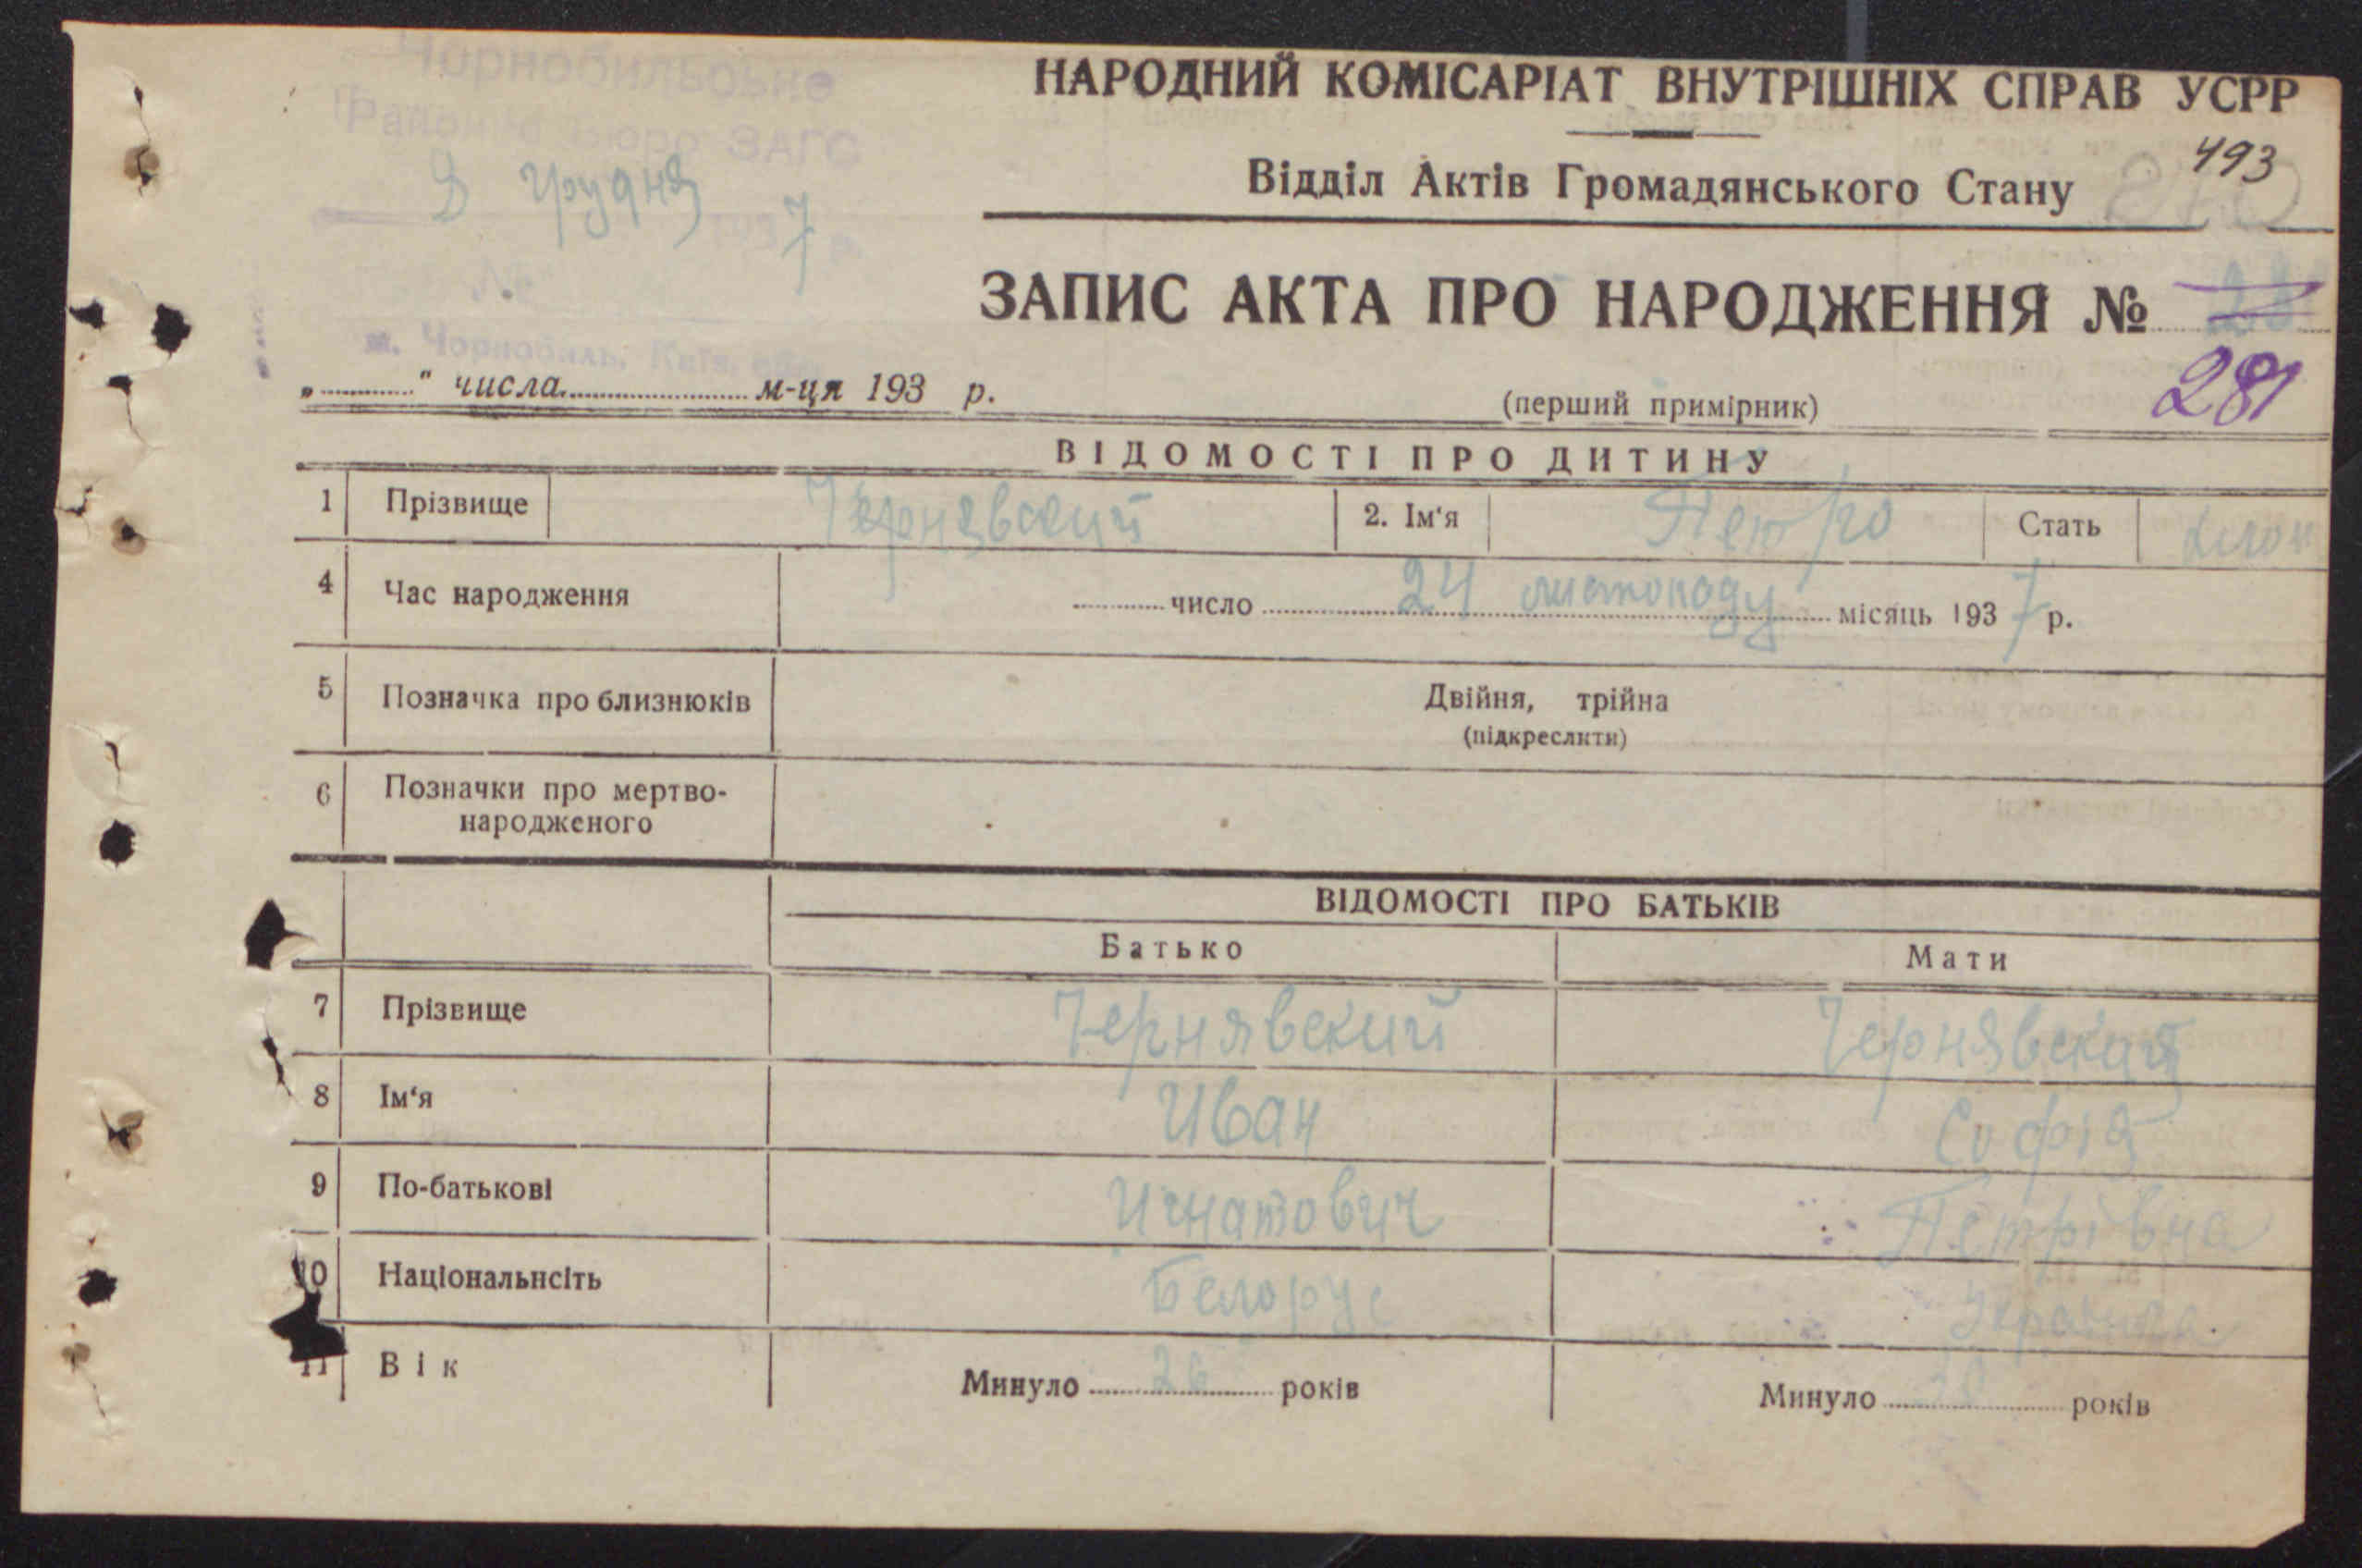 Чорнобильське
Районне бюро ЗАГС
грудня 1937 р.
№
м. Чорнобиль, Київ. обл.
НАРОДНИЙ КОМІСАРІАТ ВНУТРІШНІХ СПРАВ УСРР
493
Відділ Актів Громадянського Стану
ЗАПИС АКТА ПРО НАРОДЖЕННЯ №
281
„ " числа м-ця 193 р.
(перший примірник)
ВІДОМОСТІ ПРО ДИТИНУ
1 Прізвище Чернявский 2. Ім'я Петро Стать
4 Час народження число 24 листопаду місяць 1937 р.
5 Позначка про близнюків Двійня, трійна
(підкреслити)
6 Позначки про мертво-
народженого
ВІДОМОСТІ ПРО БАТЬКІВ
Батько Мати
7 Прізвище Чернявский
8 Ім'я Иван Софія
9 По-батькові Игнатович Петрівна
10 Національнсіть Белорус
11 Вік Минуло 26 років Минуло років